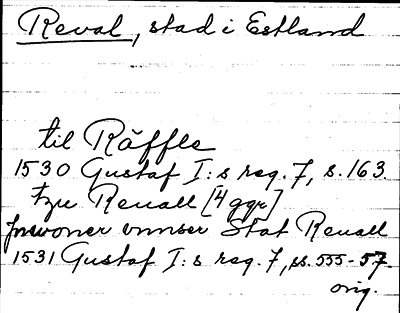 Reval, stad i Estland
til Räffle
1530 Gustaf I:s reg. 7, s. 163.
tzu Reuall [4 ggr]
Inwoner vnnser Stat Reuall
1531 Gustaf I:s reg. 7, ss. 555-57.
orig.